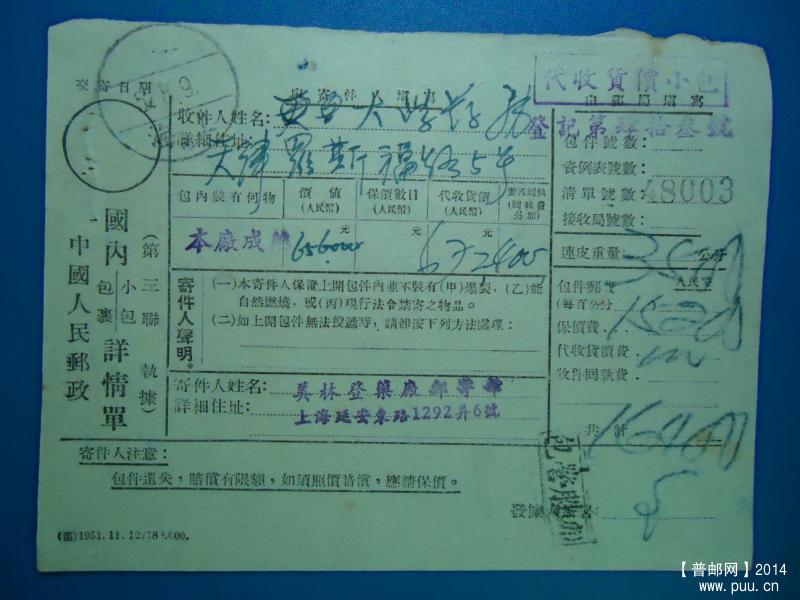 交寄日期
9.
代收貨價小包
登記第肆拾叁號
由郵局填寫
收件人姓名：
詳細住址：
天津羅斯福路5号
包內裝有何物
價值（人民幣）
保價數目（人民幣）
代收貨價（人民幣）
元
元
本廠成
656000
672400
包件號數：
清單號數：48003
接收局號數：
連皮重量：
包件郵費
人民幣
（每百公分
保價費：
代收貨價費：
收件回執費：
共計
16400
寄件人聲明*
（一）本寄件人保證上開包件內並不裝有（甲）爆裂，（乙）能
自然燃燒，或（丙）現行法令禁寄之物品。
（二）如上開包件無法投遞時，請卽按下列方法處理：
寄件人姓名：
美林登藥廠郵
詳細住址：
上海延安東路1292弄6號
中國人民郵政
國內小包包裹詳情單
（第三聯 執據）
寄件人注意：
包件遺失，賠償有限額，如須照價賠償，應請保價。
1951.11.
【普邮网】2014
www.puu.cn